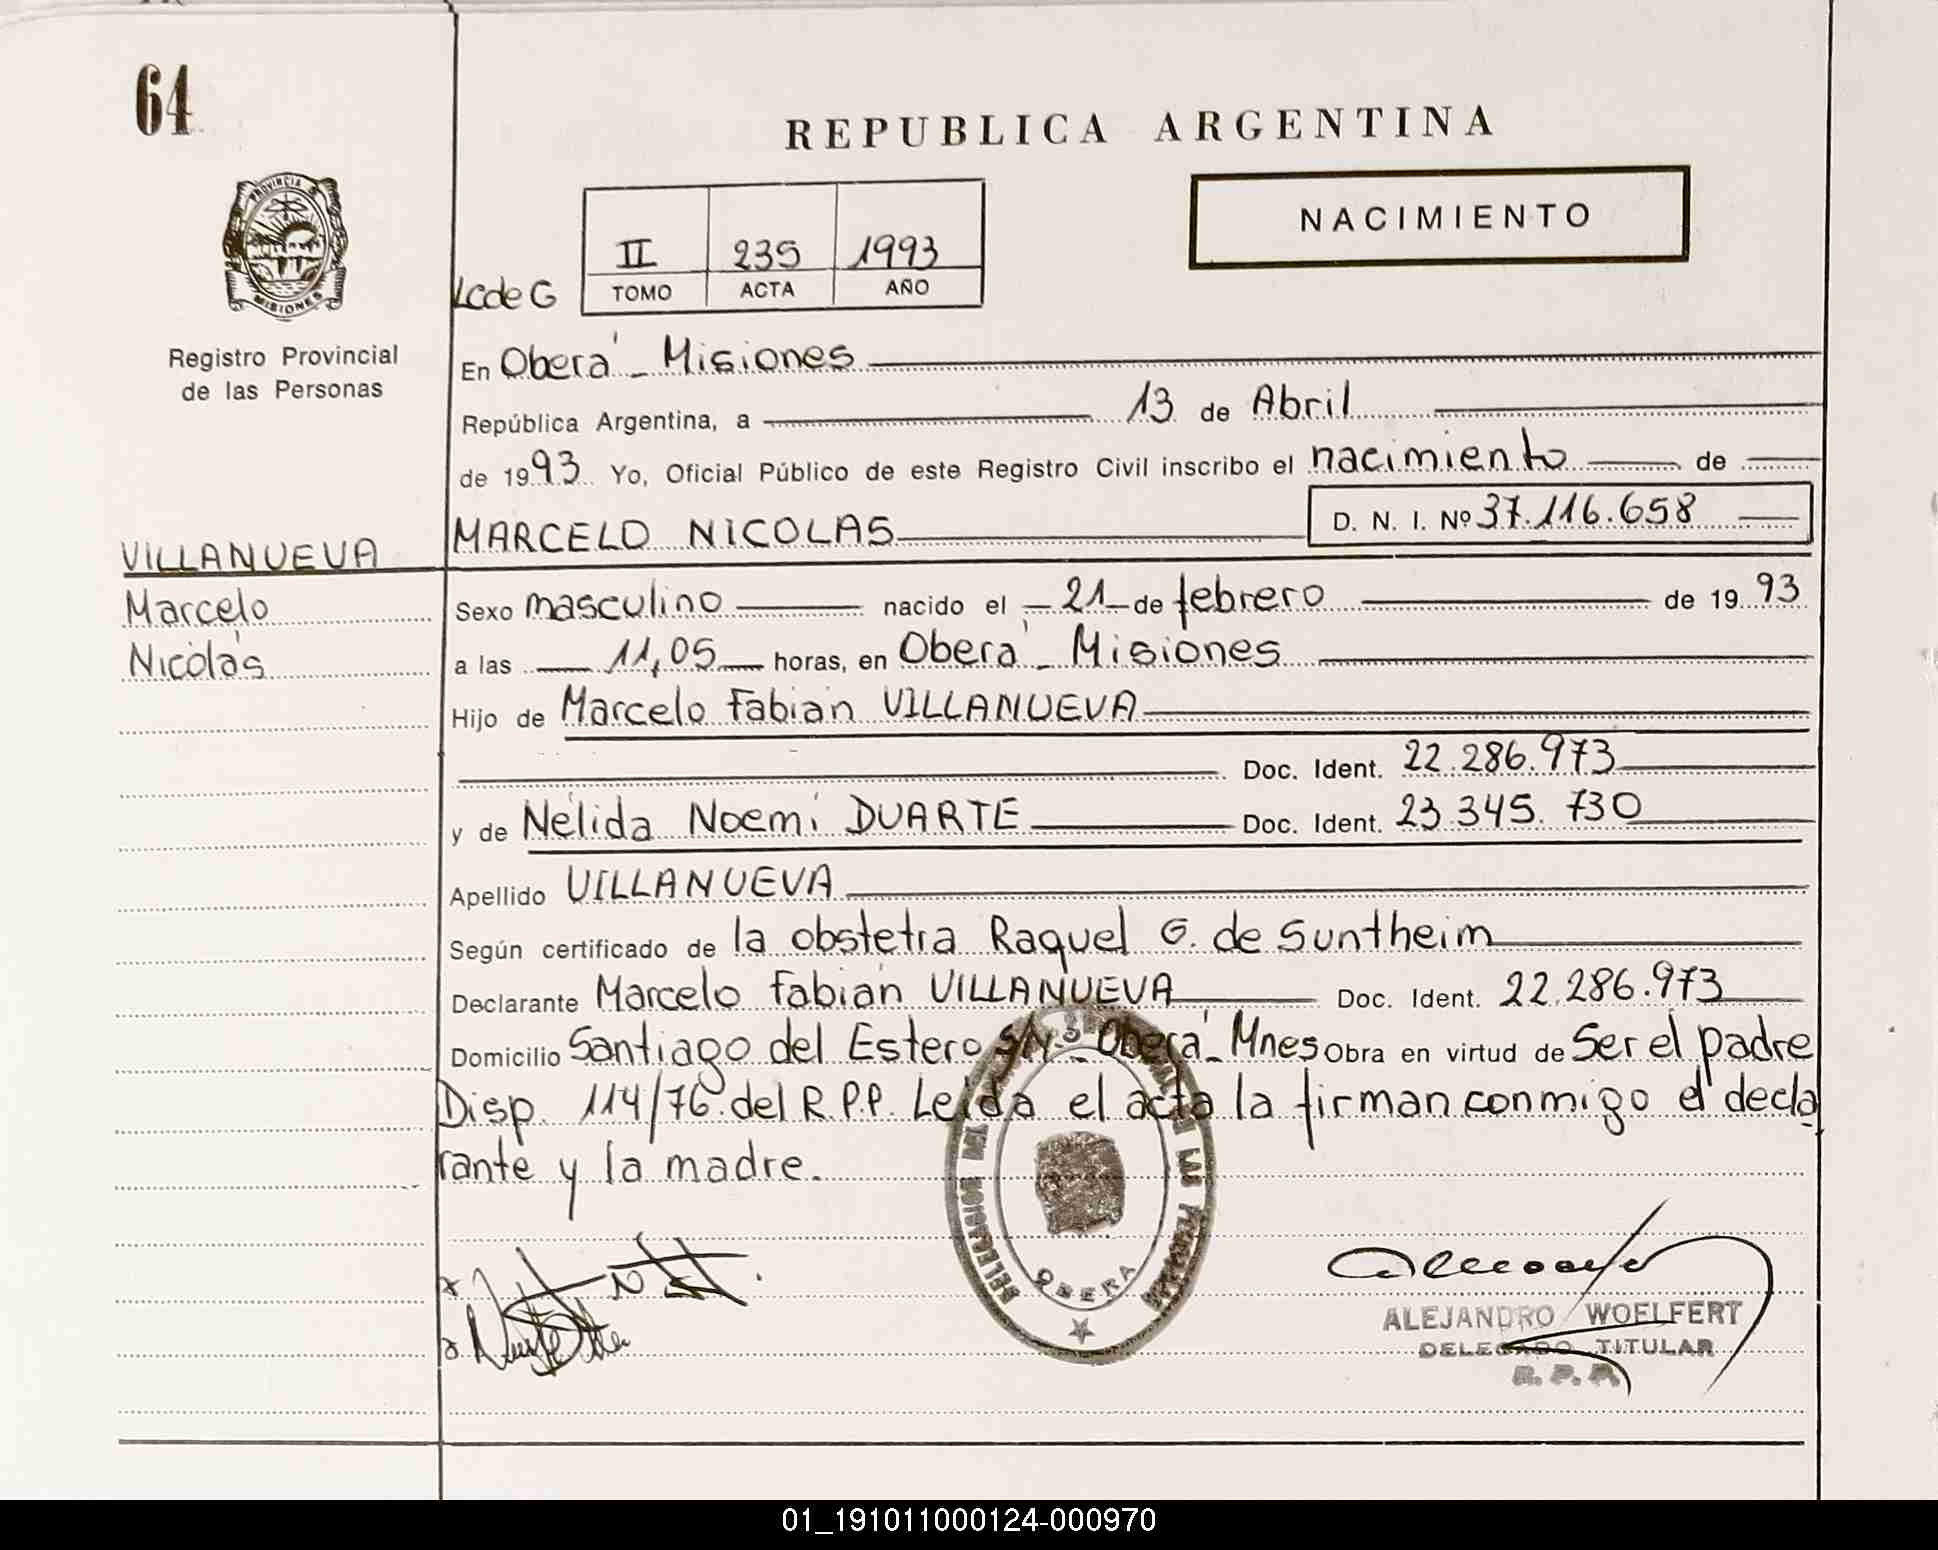 64
REPUBLICA ARGENTINA
PROVINCIA
MISIONES
NACIMIENTO
II 235 1993
LcdeG TOMO ACTA AÑO
Registro Provincial
de las Personas
En Oberá - Misiones
República Argentina, a 13 de Abril
de 1993 Yo, Oficial Público de este Registro Civil inscribo el nacimiento de
MARCELO NICOLAS D. N. I. Nº 37.116.658
VILLANUEVA
Marcelo
Nicolás
Sexo masculino nacido el 21 de febrero de 1993
a las 11,05 horas, en Oberá - Misiones
Hijo de Marcelo Fabián VILLANUEVA
Doc. Ident. 22.286.973
y de Nélida Noemí DUARTE Doc. Ident. 23.345.730
Apellido VILLANUEVA
Según certificado de la obstetra Raquel G. de Suntheim
Declarante Marcelo Fabián VILLANUEVA Doc. Ident. 22.286.973
Domicilio Santiago del Estero S/Nº - Oberá - Mnes Obra en virtud de Ser el padre
Disp. 114/76 del R.P.P. Leída el acta la firman conmigo el decla
rante y la madre.
OBERA
ALEJANDRO WOELFERT
DELEGADO TITULAR
R. P. P.
01_191011000124-000970